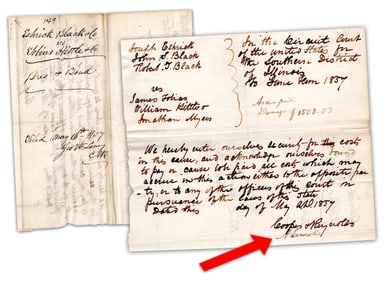 Eshrick Black & Co
vs
Tobias Hittle & Co
Prec. & Bond
Filed May 18th 1857
Joseph Eshrick
John S. Black
Robert J. Black
vs
James Tobias
William Hittle &
Jonathan Myers
In the Circuit Court
of the United States for
the Southern District
of Illinois
To June Term 1857
Assumpsit
We hereby enter ourselves security for the costs
in this cause, and acknowledge ourselves bound
to pay or cause to be paid all costs which may
accrue in this action either to the opposite par
ty or to any of the officers of the Court in
pursuance of the laws of this State
Dated this day of May AD 1857
Cooper & Reynolds